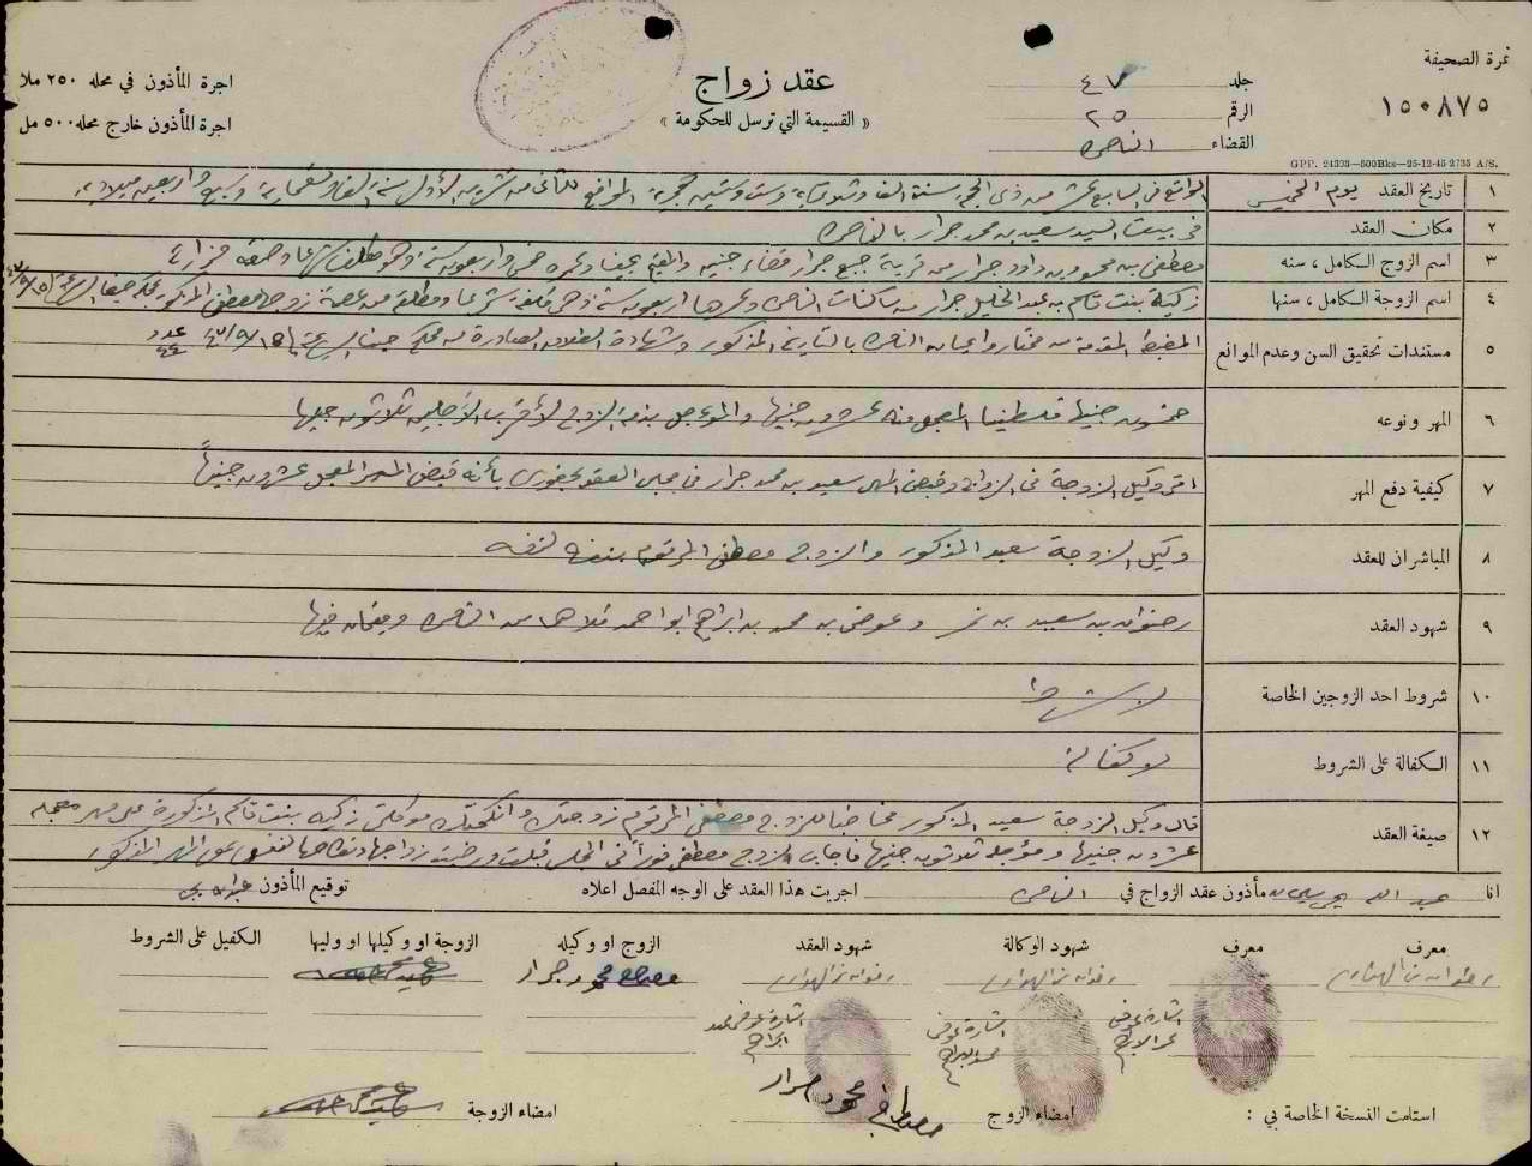 نمرة الصحيفة
١٥٠٨٧٥
جلد ٤٧
الرقم ٢٥
القضاء الناصرة
عقد زواج
« القسيمة التي ترسل للحكومة »
اجرة المأذون في محله ٢٥٠ ملا
اجرة المأذون خارج محله ٥٠٠ مل
GPP. 24323—500Bks—25-12-45 2735 A/S.
١ تاريخ العقد يوم الخميس الواقع في السابع عشر من ذي الحجة سنة الف وثلاثماية وست وستين هجرية الموافق للثاني من تشرين الأول سنة الف وتسعماية وسبع واربعين ميلادية
٢ مكان العقد في بيت السيد سعيد بن محمد جرار بالناصرة
٣ اسم الزوج الكامل ، سنه مصطفى بن محمود بن داود جرار من قرية جبع جرار قضاء جنين والمقيم بحيفا وعمره خمس واربعون سنة
٤ اسم الزوجة الكامل ، سنها زكية بنت قاسم بن عبد الخليل جرار من ساكنات الناصرة وعمرها اربعون سنة وهي مكلفة شرعا ومطلقة من عصمة زوجها مصطفى المذكور
٥ مستندات تحقيق السن وعدم الموانع المضبطة المقدمة من مختار واعيان الناصرة بالتاريخ المذكور وشهادة الطلاق الصادرة من محكمة حيفا الشرعية
٦ المهر ونوعه خمسون جنيها فلسطينيا المعجل منه عشرون جنيها والمؤجل بذمة الزوج لأقرب الأجلين ثلاثون جنيها
٧ كيفية دفع المهر اقر وكيل الزوجة في الزواج وقبض المهر سعيد بن محمد جرار في مجلس العقد بحضوري بأنه قبض المهر المعجل عشرون جنيهاً
٨ المباشران للعقد وكيل الزوجة سعيد المذكور والزوج مصطفى المرقوم بنفسه لنفسه
٩ شهود العقد رضوان بن سعيد بن نمر وعوض بن محمد بن ابراهيم ابو احمد كلاهما من الناصرة ومقيمان فيها
١٠ شروط احد الزوجين الخاصة لا شروط
١١ الكفالة على الشروط لا كفالة
١٢ صيغة العقد قال وكيل الزوجة سعيد المذكور مخاطبا للزوج مصطفى المرقوم زوجتك وانكحتك موكلتي زكية بنت قاسم المذكورة على مهر معجله
عشرون جنيها ومؤجله ثلاثون جنيها فاجاب الزوج مصطفى فوراً في المجلس قبلت ورضيت زواجها ونكاحها لنفسي على المهر المذكور
انا عبد الله مأذون عقد الزواج في الناصرة اجريت هذا العقد على الوجه المفصل اعلاه توقيع المأذون
معرف معرف شهود الوكالة شهود العقد الزوج او وكيله الزوجة او وكيلها او وليها الكفيل على الشروط
مصطفى محمود جرار
اشارة عوض محمد ابراهيم
استلمت النسخة الخاصة بي : امضاء الزوج مصطفى محمود جرار امضاء الزوجة